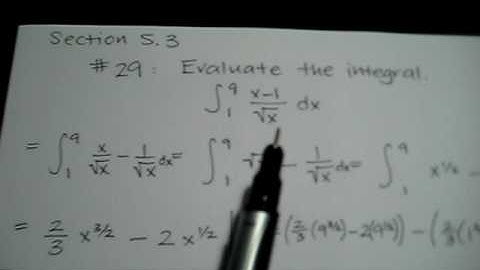 Section 5.3
#29: Evaluate the integral.
∫₁⁹ (x-1)/√x dx
= ∫₁⁹ x/√x - 1/√x dx = ∫₁⁹ √ - 1/√x dx = ∫₁⁹ x^1/2 -
= 2/3 x^3/2 - 2x^1/2 | (2/3(9^3/2) - 2(9^1/2)) - (2/3(1